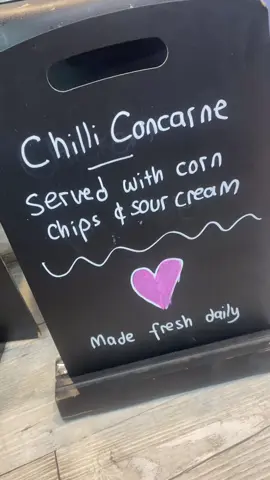 Chilli Concarne
Served with corn
chips & sour cream
Made fresh daily